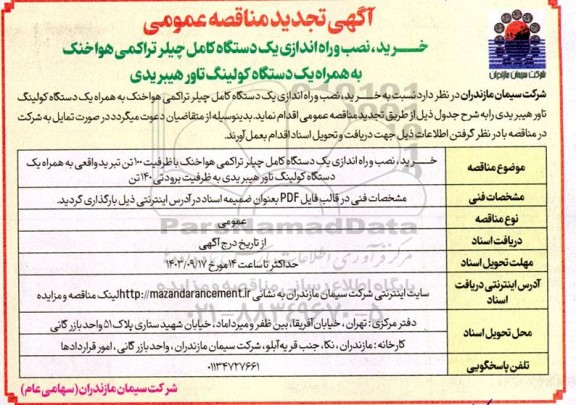 آگهی تجدید مناقصه عمومی
خـــرید، نصب و راه اندازی یک دستگاه کامل چیلر تراکمی هواخنک
به همراه یک دستگاه کولینگ تاور هیبریدی
شرکت سیمان مازندران
شرکت سیمان مازندران در نظر دارد نسبت به خـرید، نصب و راه اندازی یک دستگاه کامل چیلر تراکمی هواخنک به همراه یک دستگاه کولینگ
تاور هیبریدی را به شرح جدول ذیل از طریق تجدید مناقصه عمومی اقدام نماید. بدینوسیله از متقاضیان دعوت میگردد در صورت تمایل به شرکت
در مناقصه با در نظر گرفتن اطلاعات ذیل جهت دریافت و تحویل اسناد اقدام بعمل آورند.
موضوع مناقصه
خـــرید، نصب و راه اندازی یک دستگاه کامل چیلر تراکمی هواخنک با ظرفیت ۱۰۰ تن تبرید واقعی به همراه یک
دستگاه کولینگ تاور هیبریدی به ظرفیت برودتی ۱۴۰ تن
مشخصات فنی
مشخصات فنی در قالب فایل PDF بعنوان ضمیمه اسناد در آدرس اینترنتی ذیل بارگذاری گردید.
نوع مناقصه
عمومی
دریافت اسناد
از تاریخ درج آگهی
مهلت تحویل اسناد
حداکثر تا ساعت ۱۴ مورخ ۱۴۰۳/۰۹/۱۷
آدرس اینترنتی دریافت
اسناد
سایت اینترنتی شرکت سیمان مازندران به نشانی http://mazandarancement.ir لینک مناقصه و مزایده
محل تحویل اسناد
دفتر مرکزی : تهران، خیابان آفریقا، بین ظفر و میرداماد، خیابان شهید ستاری پلاک ۵۱ واحد بازرگانی
کارخانه : مازندران، نکا، جنب قریه آبلو، شرکت سیمان مازندران، واحد بازرگانی، امور قراردادها
تلفن پاسخگویی
۰۱۱۳۴۷۲۷۶۶۱
شرکت سیمان مازندران (سهامی عام)
ParsNamadData
پایگاه اطلاع رسانی مناقصه و مزایده
۰۲۱-۸۸۳۴۹۶۷۰-۵